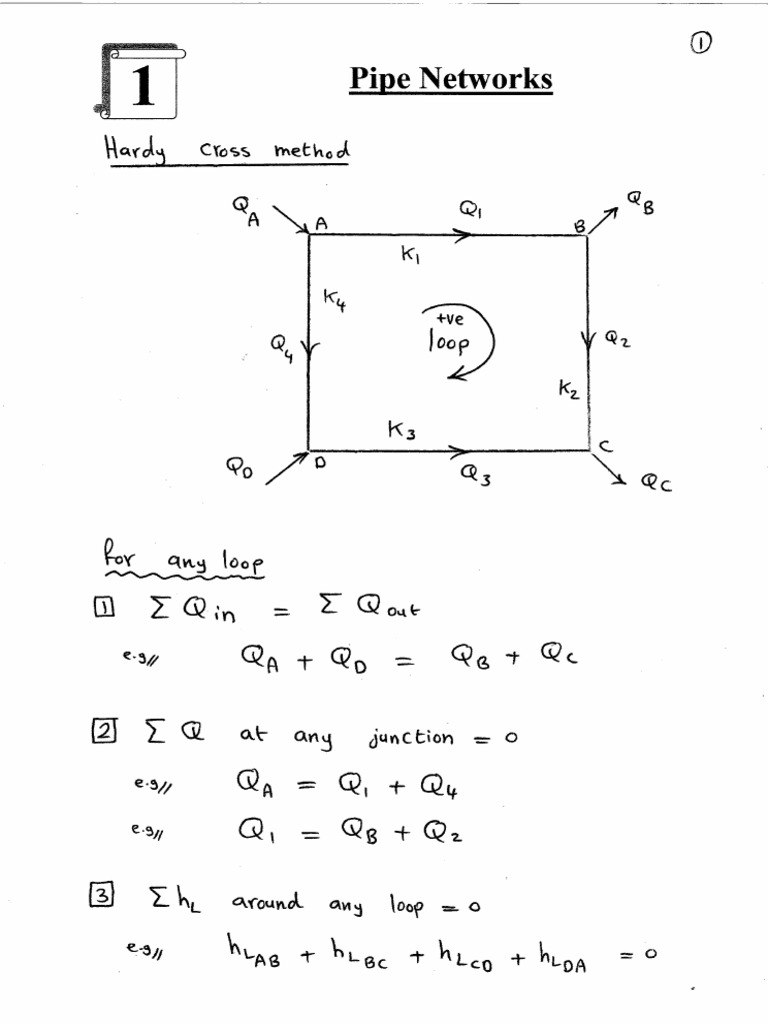 ①
1
Pipe Networks
Hardy cross method
Q_A
A
Q_1
B
Q_B
K_1
K_4
+ve
loop
Q_4
Q_2
K_2
K_3
Q_D
D
Q_3
C
Q_C
for any loop
1 Σ Q_in = Σ Q_out
e.g// Q_A + Q_D = Q_B + Q_C
2 Σ Q at any junction = 0
e.g// Q_A = Q_1 + Q_4
e.g// Q_1 = Q_B + Q_2
3 Σ h_L around any loop = 0
e.g// h_L_AB + h_L_BC + h_L_CD + h_L_DA = 0